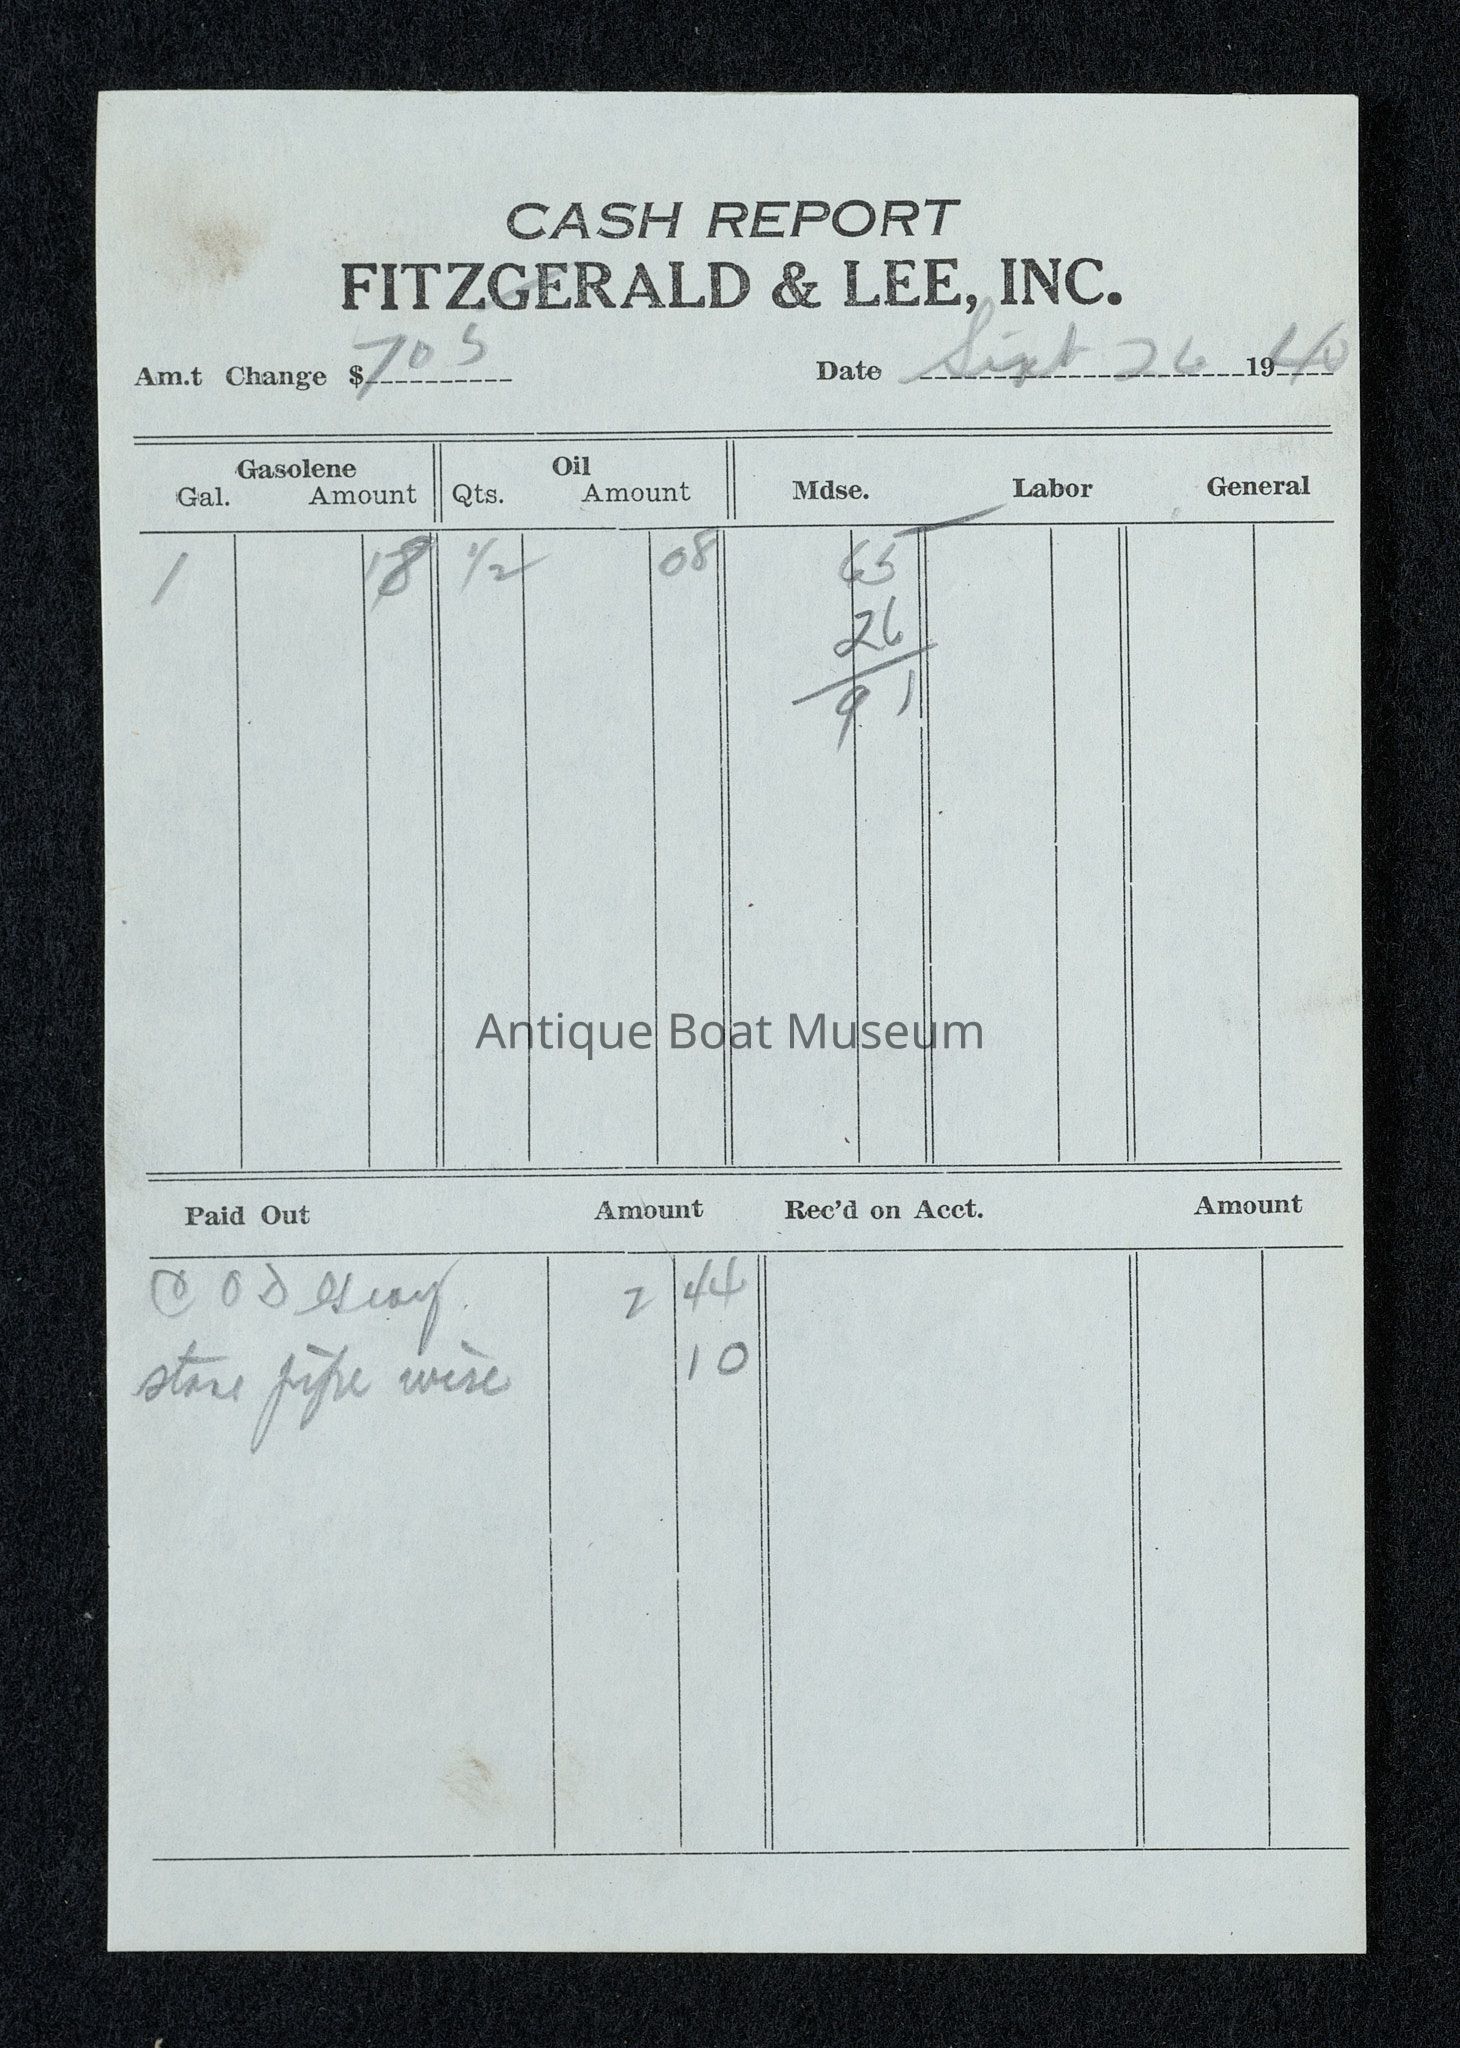 CASH REPORT
FITZGERALD & LEE, INC.
Am.t Change $ 705 Date Sept 26 1940
Gasolene Oil
Gal. Amount Qts. Amount Mdse. Labor General
1 18 1/2 08 65
26
91
Antique Boat Museum
Paid Out Amount Rec'd on Acct. Amount
C O D Gray 2 44
stove pipe wire 10